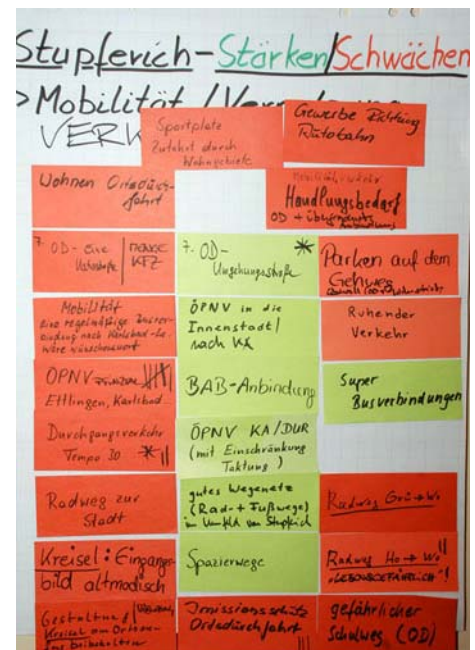 Stupferich-Stärken/Schwächen
> Mobilität /
VERK
Sportplatz
Zufahrt durch
Wohngebiete
Gewerbe Richtung
Autobahn
Wohnen Ortsdurch-
fahrt
Handlungsbedarf
OD +
7. OD-
KFZ
7. OD-
Umgehungsstraße
Parken auf dem
Gehweg
Mobilität
eine regelmäßige
nach Karlsbad
wäre wünschenswert
ÖPNV in die
Innenstadt/
nach KA
Ruhender
Verkehr
ÖPNV
Ettlingen, Karlsbad
BAB-Anbindung
Super
Busverbindungen
Durchgangsverkehr
Tempo 30
ÖPNV KA/DUR
(mit Einschränkung
Taktung)
Radweg zur
Stadt
gutes Wegenetz
(Rad- + Fußwege)
im Umfeld von Stupferich
Radweg Grü→Wo
Kreisel: Eingangs-
bild altmodisch
Spazierwege
Radweg Ho→Wo
"LEBENSGEFÄHRLICH"!
Gestaltung
Kreisel am Ortsein-
Immissionsschutz
Ortsdurchfahrt
gefährlicher
Schulweg (OD)